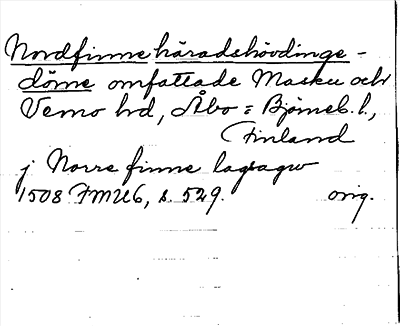 Nordfinne häradshövdinge-
döme omfattade Masku och
Vemo hd, Åbo = Björneb. l.,
Finland
j Norre finne lagsagw
1508 FMU6, s. 529. orig.